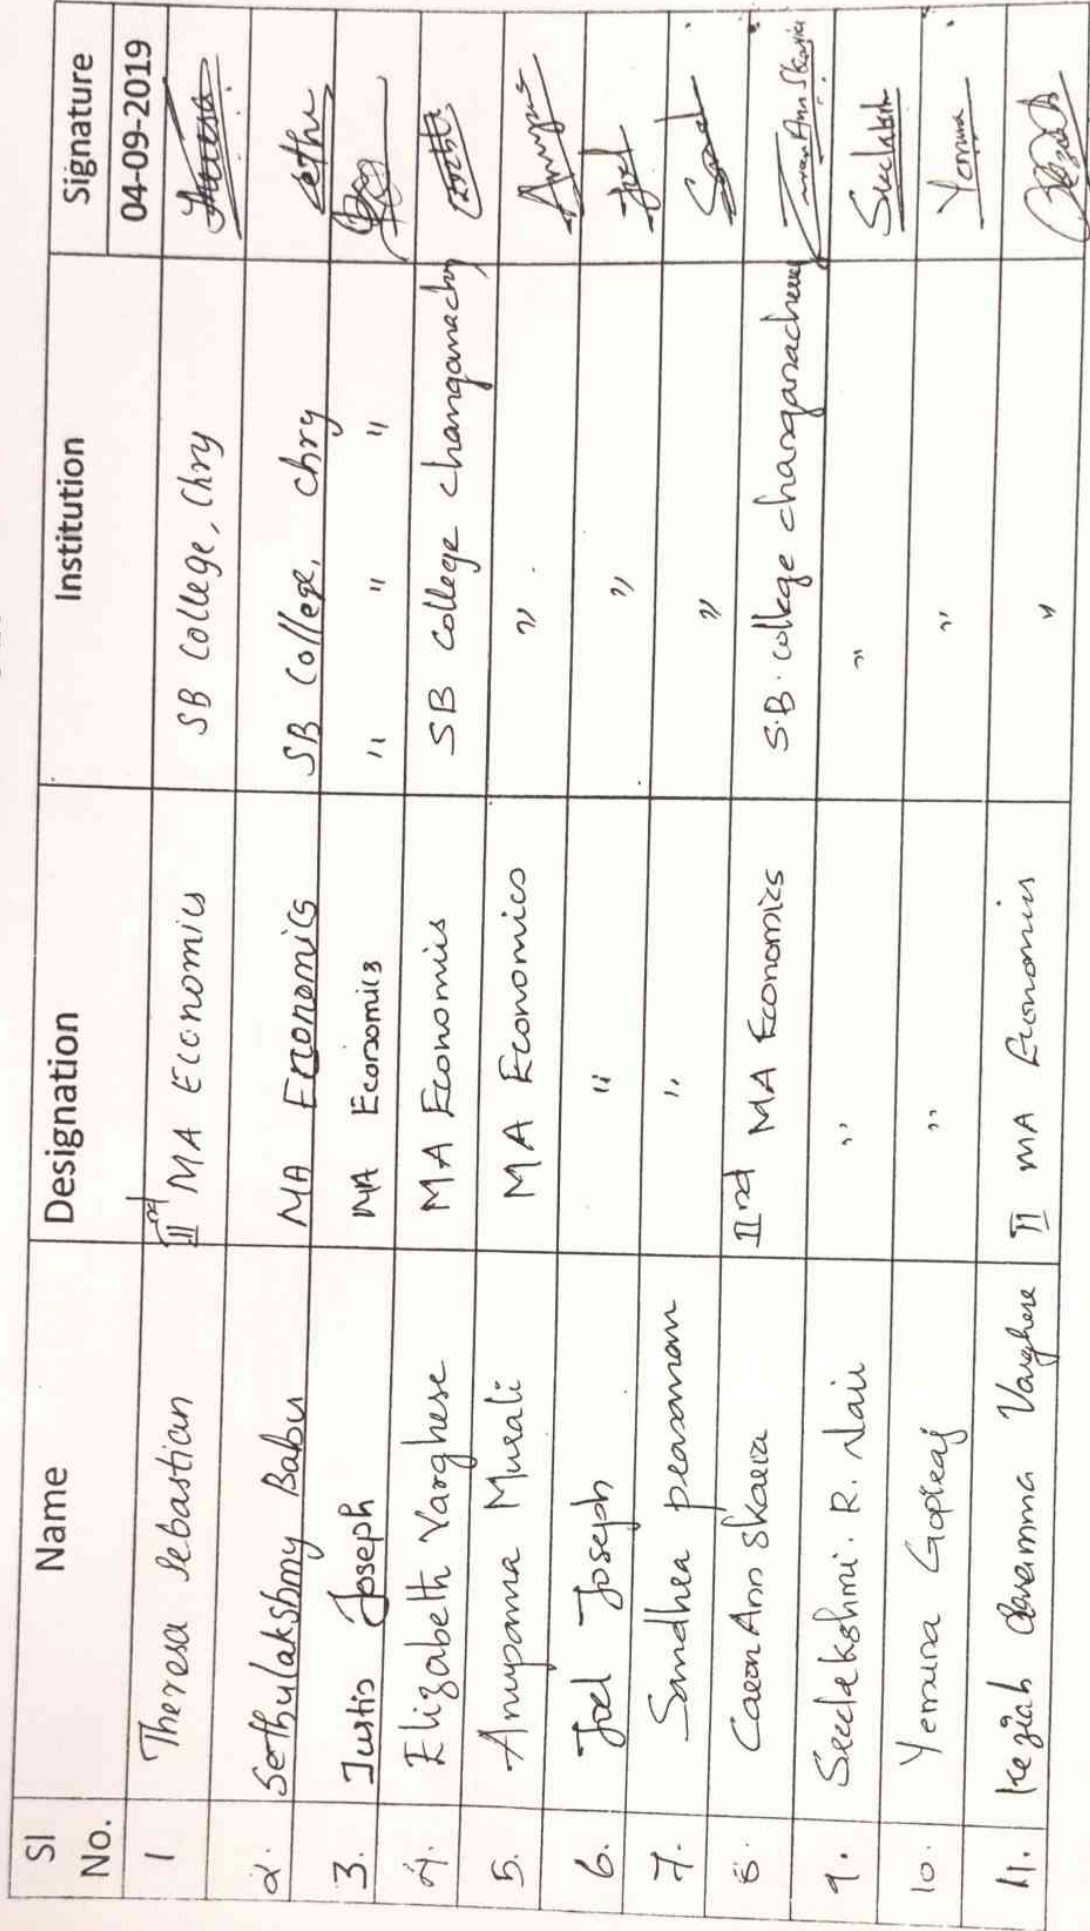 Sl No. Name Designation Institution Signature
04-09-2019
1 Theresa Sebastian IInd MA Economics SB College, Chry
2. Sethulakshmy Babu MA Economics SB College, Chry Sethu
3. Justin Joseph MA Economics " " "
4. Elizabeth Varghese MA Economics SB College Changanachry
5. Anupama Murali MA Economics "
6. Joel Joseph " " Joel
7. Sandhra " "
8. Ann Skaria IInd MA Economics S.B. College Changanacherry Ann Skaria
9. Sreelekshmi. R. Nair " " Sreelakshmi
10. Yemuna Gopiraj " " Yemuna
11. Keziah Varghese II MA Economics "